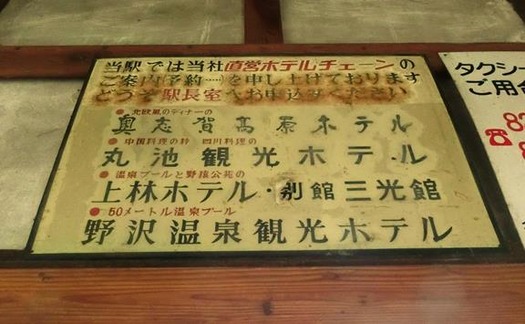 当駅では当社直営ホテルチェーンの
ご案内予約……を申し上げております
どうぞ駅長室へお申込みください
● 北欧風のディナーの
奥志賀高原ホテル
● 中国料理の粋 四川料理の
丸池観光ホテル
● 温泉プールと野猿公苑の
上林ホテル・別館三光館
● 50メートル温泉プール
野沢温泉観光ホテル
タクシー
ご用
☎